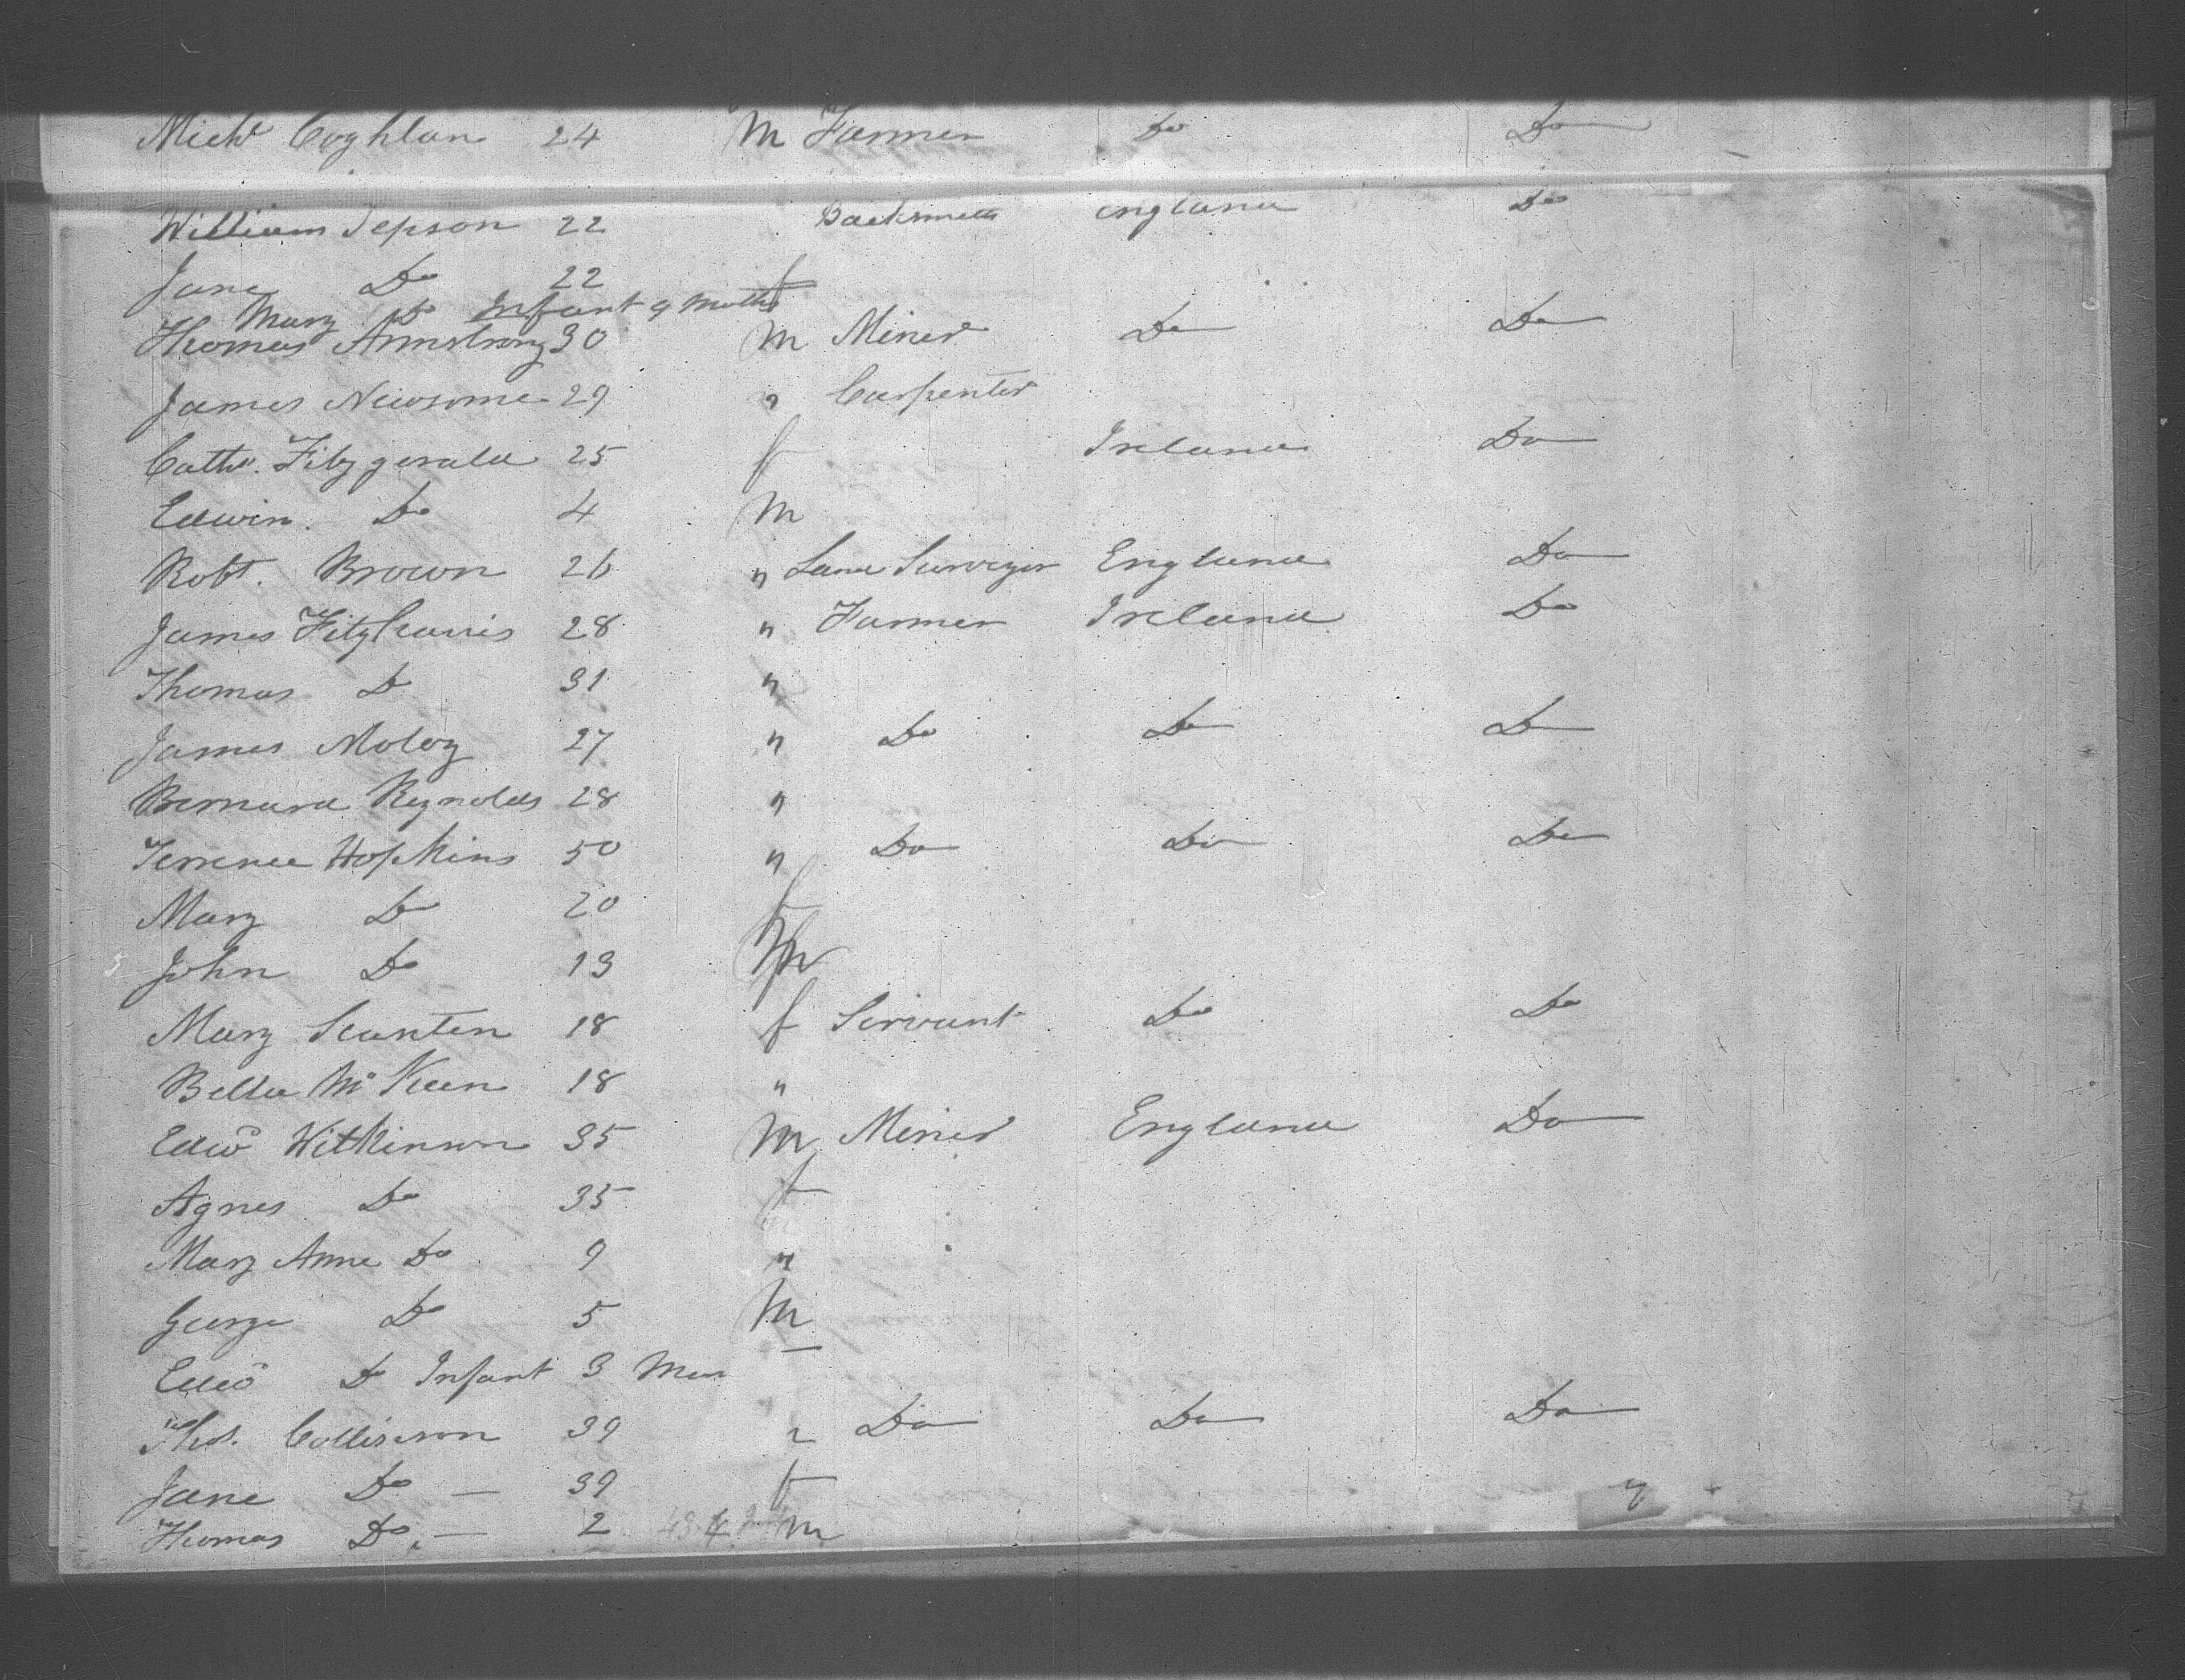 Michl Coghlan 24 M Farmer Do Do
William Jepson 22 England Do
Jane Do 22 f
Mary Do Infant 9 Moths
Thomas Armstrong 30 M Miner Do Do
James Newsome 29 " Carpenter
Cathe. Fitzgerald 25 f Ireland Do
Edwin. Do 4 M
Robt. Brown 26 " Land Surveyor England Do
James FitzHarris 28 " Farmer Ireland Do
Thomas Do 31 "
James Moloy 27 " Do Do Do
Bernard Reynolds 28 "
Terrence Hopkins 50 " Do Do Do
Mary Do 20 f
John Do 13 M
Mary Scanten 18 f Servant Do Do
Bella McKeen 18 "
Edwd Wilkinson 35 M Miner England Do
Agnes Do 35 f
Mary Anne Do 9 "
George Do 5 M
Edwd Do Infant 3 Mos —
Thos. Collisson 39 " Do Do Do
Jane Do — 39 f
Thomas Do. — 2 M